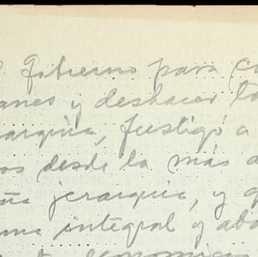 Gobierno para co
anes y deshacer lo
arquía, fustigó a
os desde la más a
jerarquía, y q
ma integral y aba
economica